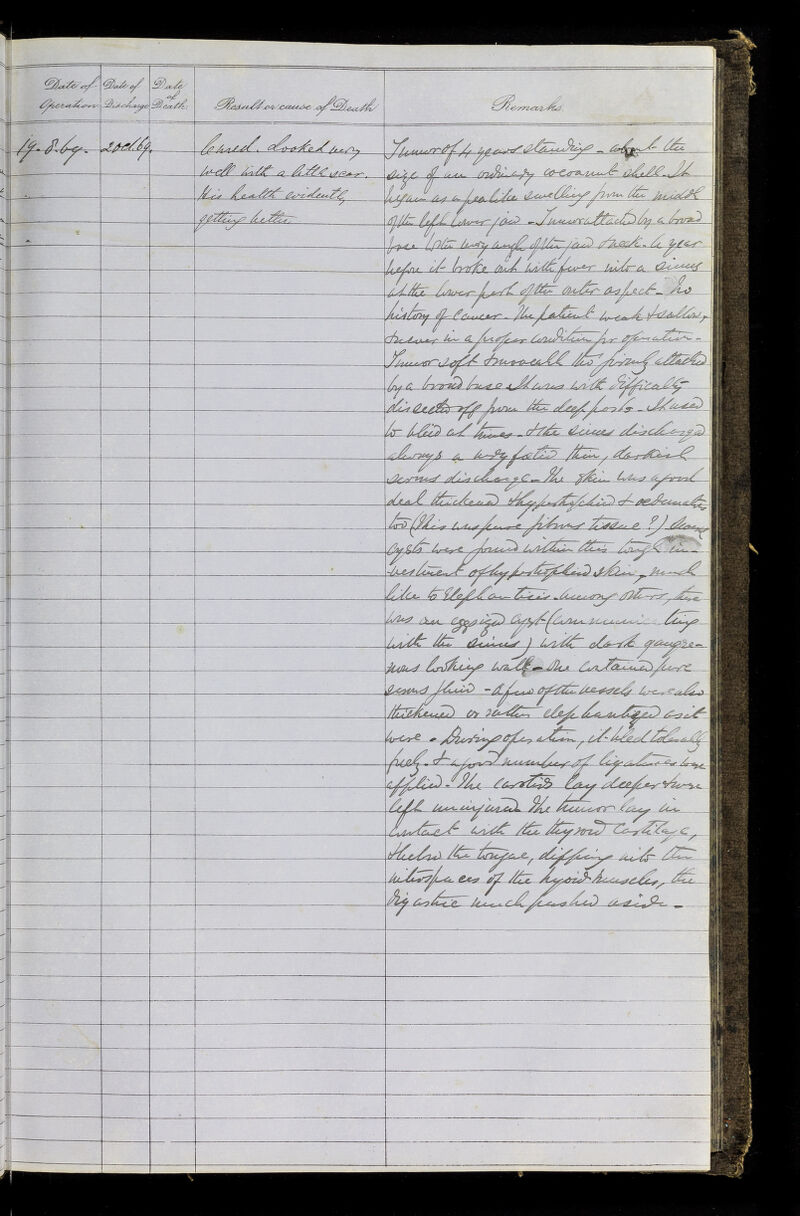 Date of Operation
Date of Discharge
Date of Death
Result or cause of Death
Remarks
19.8.69. 2 Oct 69.
Cured. Looked very
well with a little scar.
His health evidently
getting better
Tumor of 4 years standing - about the
size of an ordinary cocoanut shell. It
began as a pealike swelling from the middle
of the left lower jaw - Tumor attached by a broad
base to the very angle of the jaw & neck. A year
before it broke out with fever into a sinus
at the lower part of the outer aspect - No
history of Cancer. The patient weak & sallow,
& never in a proper condition for operation -
Tumor soft & moveable tho' firmly attached
by a broad base & was with difficulty
dissected off from the deep parts - It used
to bleed at times - & the sinus discharged
always a very foetid thin, darkish
serous discharge - The skin was a good
deal thickened & hypertrophied & oedematous
too (This was pure fibrous tissue ?) Some
cysts were found within this tough in-
vestment of hypertrophied skin, much
like to Elephantiasis. Among others, there
was an egg sized cyst (communicating
with the sinus) with dark gangre-
nous looking wall - One contained pure
serous fluid - A few of the vessels were also
thickened or rather elephantized as it
were - During operation, it bled tolerably
freely - & a good number of ligatures were
applied - The carotids lay deeper & were
left uninjured The tumor lay in
contact with the thyroid Cartilage,
& below the tongue, dipping into the
interspaces of the hyoid muscles, the
digastric much pushed aside -